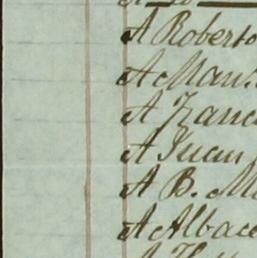 A Roberto
A Man
A Franc
A Juan
A B. M
A Albace